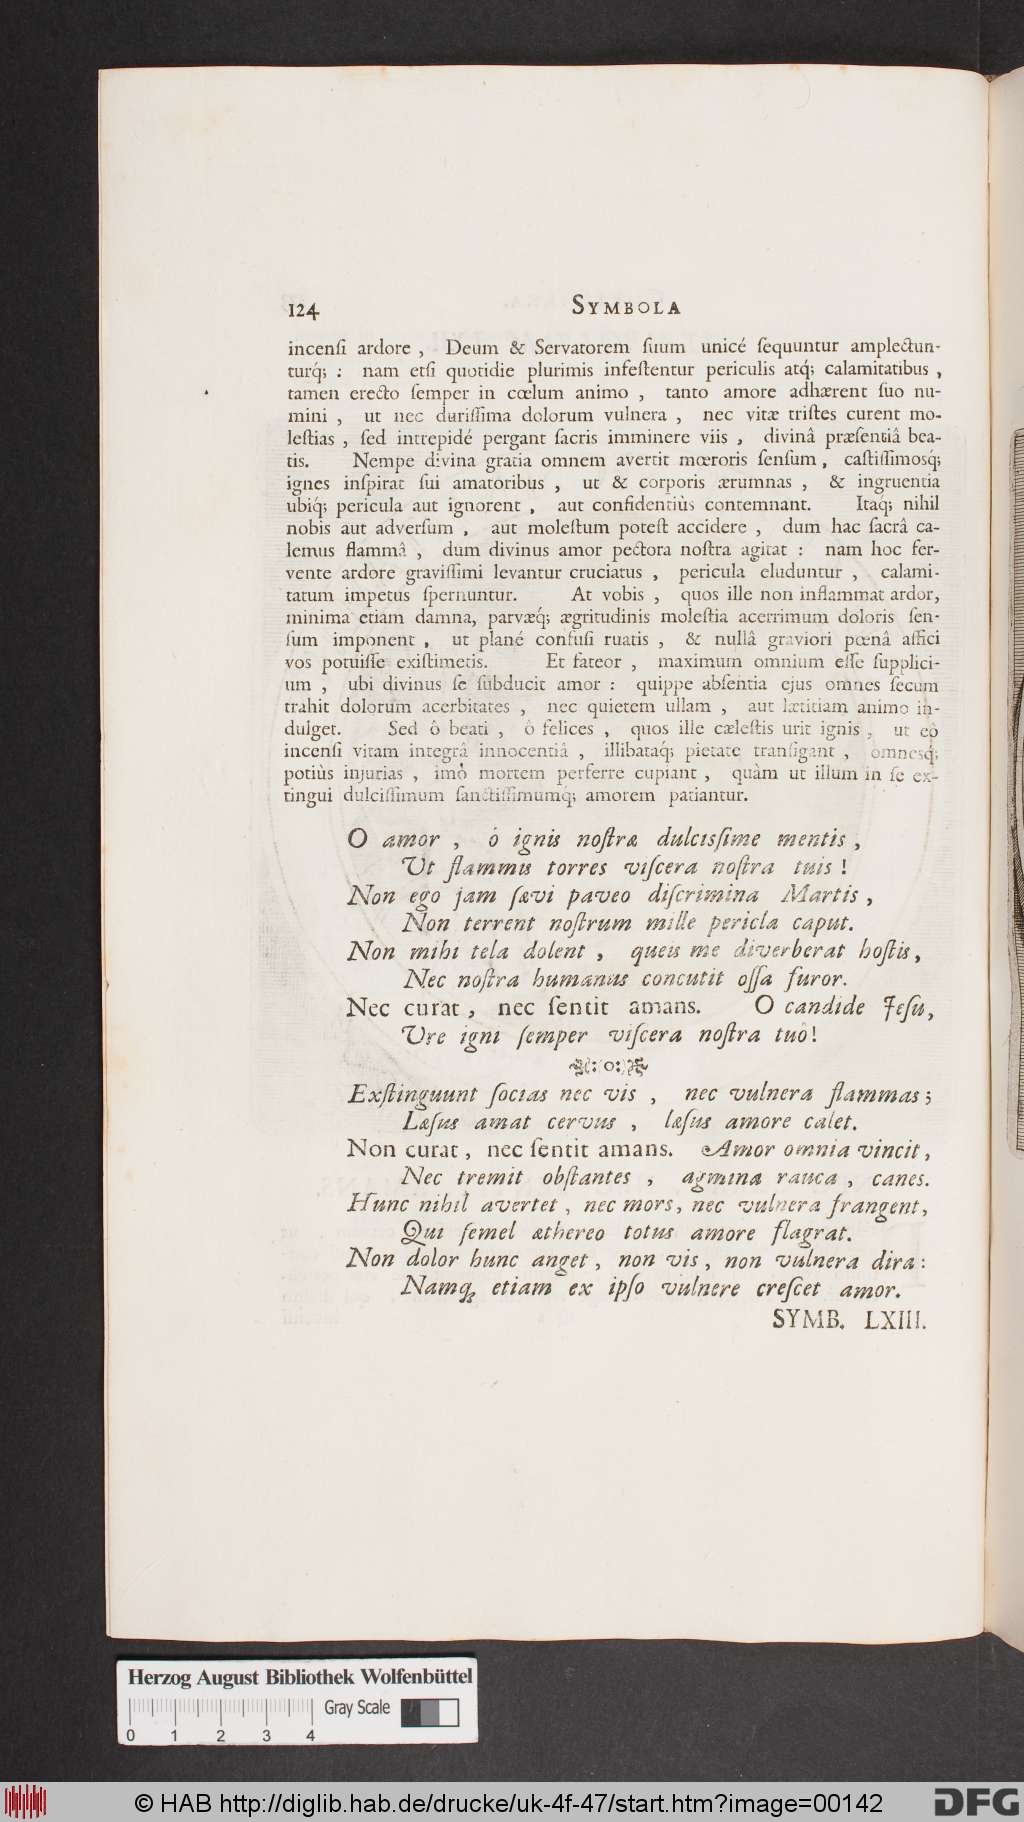 124 SYMBOLA
incenſi ardore , Deum & Servatorem ſuum unicé ſequuntur amplectun-
turq́; : nam etſi quotidie plurimis infeſtentur periculis atq́; calamitatibus ,
tamen erecto ſemper in cœlum animo , tanto amore adhærent ſuo nu-
mini , ut nec duriſſima dolorum vulnera , nec vitæ triſtes curent mo-
leſtias , ſed intrepidé pergant ſacris imminere viis , divinâ præſentiâ bea-
tis. Nempe divina gratia omnem avertit mœroris ſenſum , caſtiſſimosq́;
ignes inſpirat ſui amatoribus , ut & corporis ærumnas , & ingruentia
ubiq́; pericula aut ignorent , aut confidentiùs contemnant. Itaq́; nihil
nobis aut adverſum , aut moleſtum poteſt accidere , dum hac ſacrâ ca-
lemus flammâ , dum divinus amor pectora noſtra agitat : nam hoc fer-
vente ardore graviſſimi levantur cruciatus , pericula eluduntur , calami-
tatum impetus ſpernuntur. At vobis , quos ille non inflammat ardor,
minima etiam damna, parvæq́; ægritudinis moleſtia acerrimum doloris ſen-
ſum imponent , ut plané confuſi ruatis , & nullâ graviori pœnâ affici
vos potuiſſe exiſtimetis. Et fateor , maximum omnium eſſe ſupplici-
um , ubi divinus ſe ſubducit amor : quippe abſentia ejus omnes ſecum
trahit dolorum acerbitates , nec quietem ullam , aut lætitiam animo in-
dulget. Sed ô beati , ô felices , quos ille cæleſtis urit ignis , ut eò
incenſi vitam integrâ innocentiâ , illibataq́; pietate tranſigant , omnesq́;
potiùs injurias , imò mortem perferre cupiant , quàm ut illum in ſe ex-
tingui dulciſſimum ſanctiſſimumq́; amorem patiantur.
O amor , ó ignis noſtræ dulcisſime mentis ,
Ut flammis torres viſcera noſtra tuis !
Non ego jam ſævi paveo diſcrimina Martis ,
Non terrent noſtrum mille pericla caput.
Non mihi tela dolent , queis me diverberat hoſtis,
Nec noſtra humanus concutit oſſa furor.
Nec curat, nec ſentit amans. O candide Jeſu,
Ure igni ſemper viſcera noſtra tuô!
:o:
Exſtinguunt ſocias nec vis , nec vulnera flammas;
Læſus amat cervus , læſus amore calet.
Non curat, nec ſentit amans. Amor omnia vincit,
Nec tremit obſtantes , agmina rauca , canes.
Hunc nihil avertet, nec mors, nec vulnera frangent,
Qui ſemel æthereo totus amore flagrat.
Non dolor hunc anget, non vis, non vulnera dira:
Namq; etiam ex ipſo vulnere creſcet amor.
SYMB. LXIII.
Herzog August Bibliothek Wolfenbüttel
Gray Scale
0 1 2 3 4
© HAB http://diglib.hab.de/drucke/uk-4f-47/start.htm?image=00142
DFG